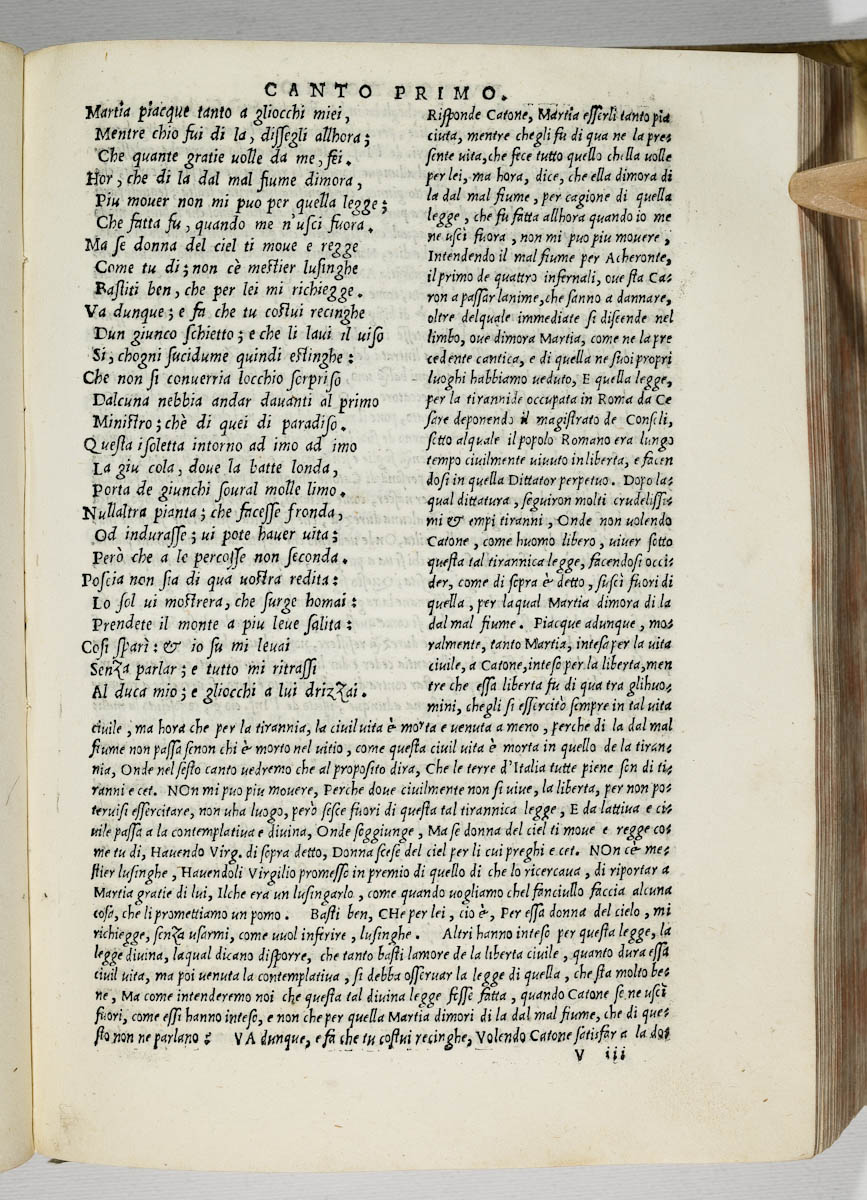 CANTO PRIMO.
Martia piacque tanto a gliocchi miei,
Mentre chio fui di la, dissegli allhora;
Che quante gratie uolle da me, fei.
Hor, che di la dal mal fiume dimora,
Piu mouer non mi puo per quella legge;
Che fatta fu, quando me n'usci fuora.
Ma se donna del ciel ti moue e regge
Come tu di; non cè mestier lusinghe
Bastiti ben, che per lei mi richiegge.
Va dunque; e fa che tu costui recinghe
Dun giunco schietto; e che li laui il uiso
Si, chogni sucidume quindi estinghe:
Che non si conuerria locchio sorpriso
Dalcuna nebbia andar dauanti al primo
Ministro; chè di quei di paradiso.
Questa isoletta intorno ad imo ad imo
La giu cola, doue la batte londa,
Porta de giunchi soural molle limo.
Nullaltra pianta; che facesse fronda,
Od indurasse; ui pote hauer uita;
Però che a le percosse non seconda.
Poscia non sia di qua uostra redita:
Lo sol ui mostrera, che surge homai:
Prendete il monte a piu leue salita:
Cosi sparì: & io su mi leuai
Senza parlar; e tutto mi ritrassi
Al duca mio; e gliocchi a lui drizzai.
Risponde Catone, Martia esserli tanto pia
ciuta, mentre chegli fu di qua ne la pre=
sente uita, che fece tutto quello chella uolle
per lei, ma hora, dice, che ella dimora di
la dal mal fiume, per cagione di quella
legge, che fu fatta allhora quando io me
ne uscì fuora, non mi puo piu mouere,
Intendendo il mal fiume per Acheronte,
il primo de quattro infernali, oue sta Ca=
ron a passar lanime, che sanno a dannare,
oltre delquale immediate si discende nel
limbo, oue dimora Martia, come ne la pre
cedente cantica, e di quella ne suoi propri
luoghi habbiamo ueduto, E quella legge,
per la tirannide occupata in Roma da Ce
sare deponendo il magistrato de Consoli,
sotto alquale il popolo Romano era lungo
tempo ciuilmente uiuuto in liberta, e facen
dosi in quella Dittator perpetuo. Dopo la=
qual dittatura, seguiron molti crudelissi=
mi & empi tiranni, Onde non uolendo
Catone, come huomo libero, uiuer sotto
questa tal tirannica legge, facendosi occi=
der, come di sopra è detto, suscì fuori di
quella, per laqual Martia dimora di la
dal mal fiume. Piacque adunque, mo=
ralmente, tanto Martia, intesa per la uita
ciuile, a Catone, inteso per la liberta, men
tre che essa liberta fu di qua tra glihuo=
mini, chegli si essercitò sempre in tal uita
ciuile, ma hora che per la tirannia, la ciuil uita è morta e uenuta a meno, perche di la dal mal
fiume non passa senon chi è morto nel uitio, come questa ciuil uita è morta in quello de la tiran=
nia, Onde nel sesto canto uedremo che al proposito dira, Che le terre d'Italia tutte piene son di ti=
ranni e cet. NOn mi puo piu mouere, Perche doue ciuilmente non si uiue, la liberta, per non po=
teruisi essercitare, non uha luogo, però sesce fuori di questa tal tirannica legge, E da lattiua e ci=
uile passa a la contemplatiua e diuina, Onde soggiunge, Ma se donna del ciel ti moue e regge co=
me tu di, Hauendo Virg. di sopra detto, Donna scese del ciel per li cui preghi e cet. NOn cè me=
stier lusinghe, Hauendoli Virgilio promesso in premio di quello di che lo ricercaua, di riportar a
Martia gratie di lui, Ilche era un lusingarlo, come quando uogliamo chel fanciullo faccia alcuna
cosa, che li promettiamo un pomo. Basti ben, CHe per lei, cio è, Per essa donna del cielo, mi
richiegge, senza usarmi, come uuol inferire, lusinghe. Altri hanno inteso per questa legge, la
legge diuina, laqual dicano disporre, che tanto basti lamore de la liberta ciuile, quanto dura essa
ciuil uita, ma poi uenuta la contemplatiua, si debba osseruar la legge di quella, che sta molto be=
ne, Ma come intenderemo noi che questa tal diuina legge fosse fatta, quando Catone se ne uscì
fuori, come essi hanno inteso, e non che per quella Martia dimori di la dal mal fiume, che di que=
sto non ne parlano: VA dunque, e fa che tu costui recinghe, Volendo Catone satisfar a la do=
V iii